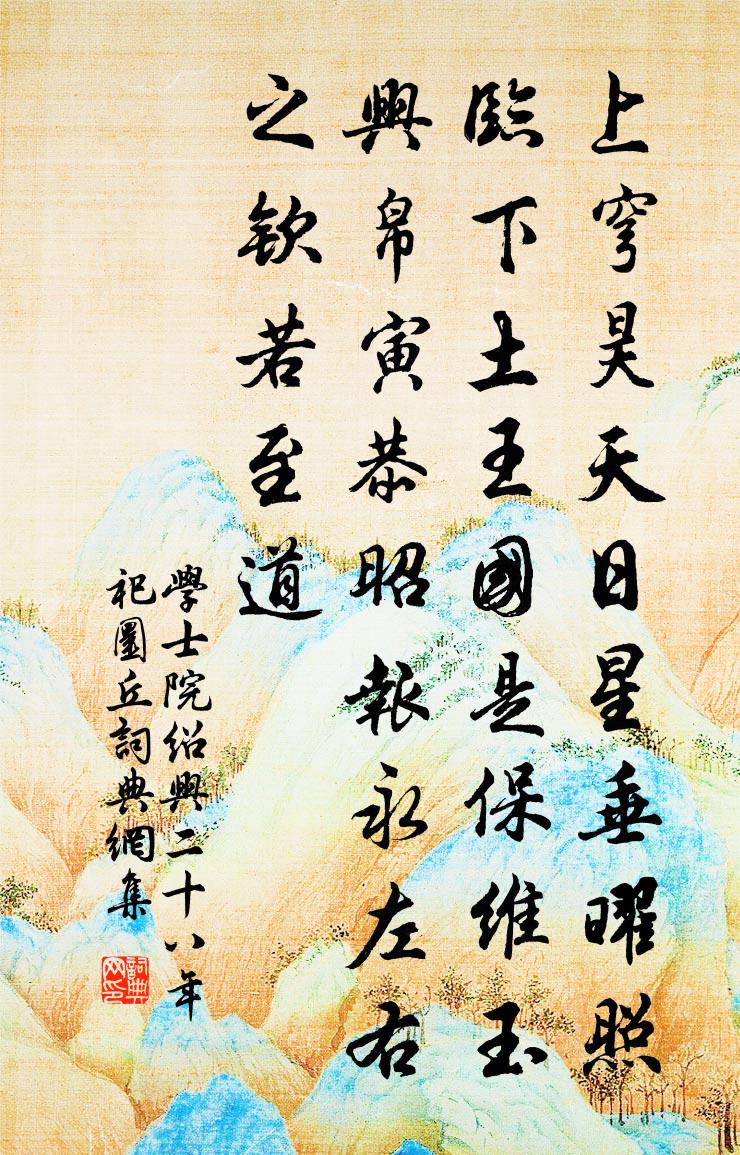 上穹昊天日星垂曜照
臨下土王國是保維玉
興帛寅恭昭報永左右
之欽若至道
學士院紹興二十八年
祀圜丘詞典網集
詞典网印